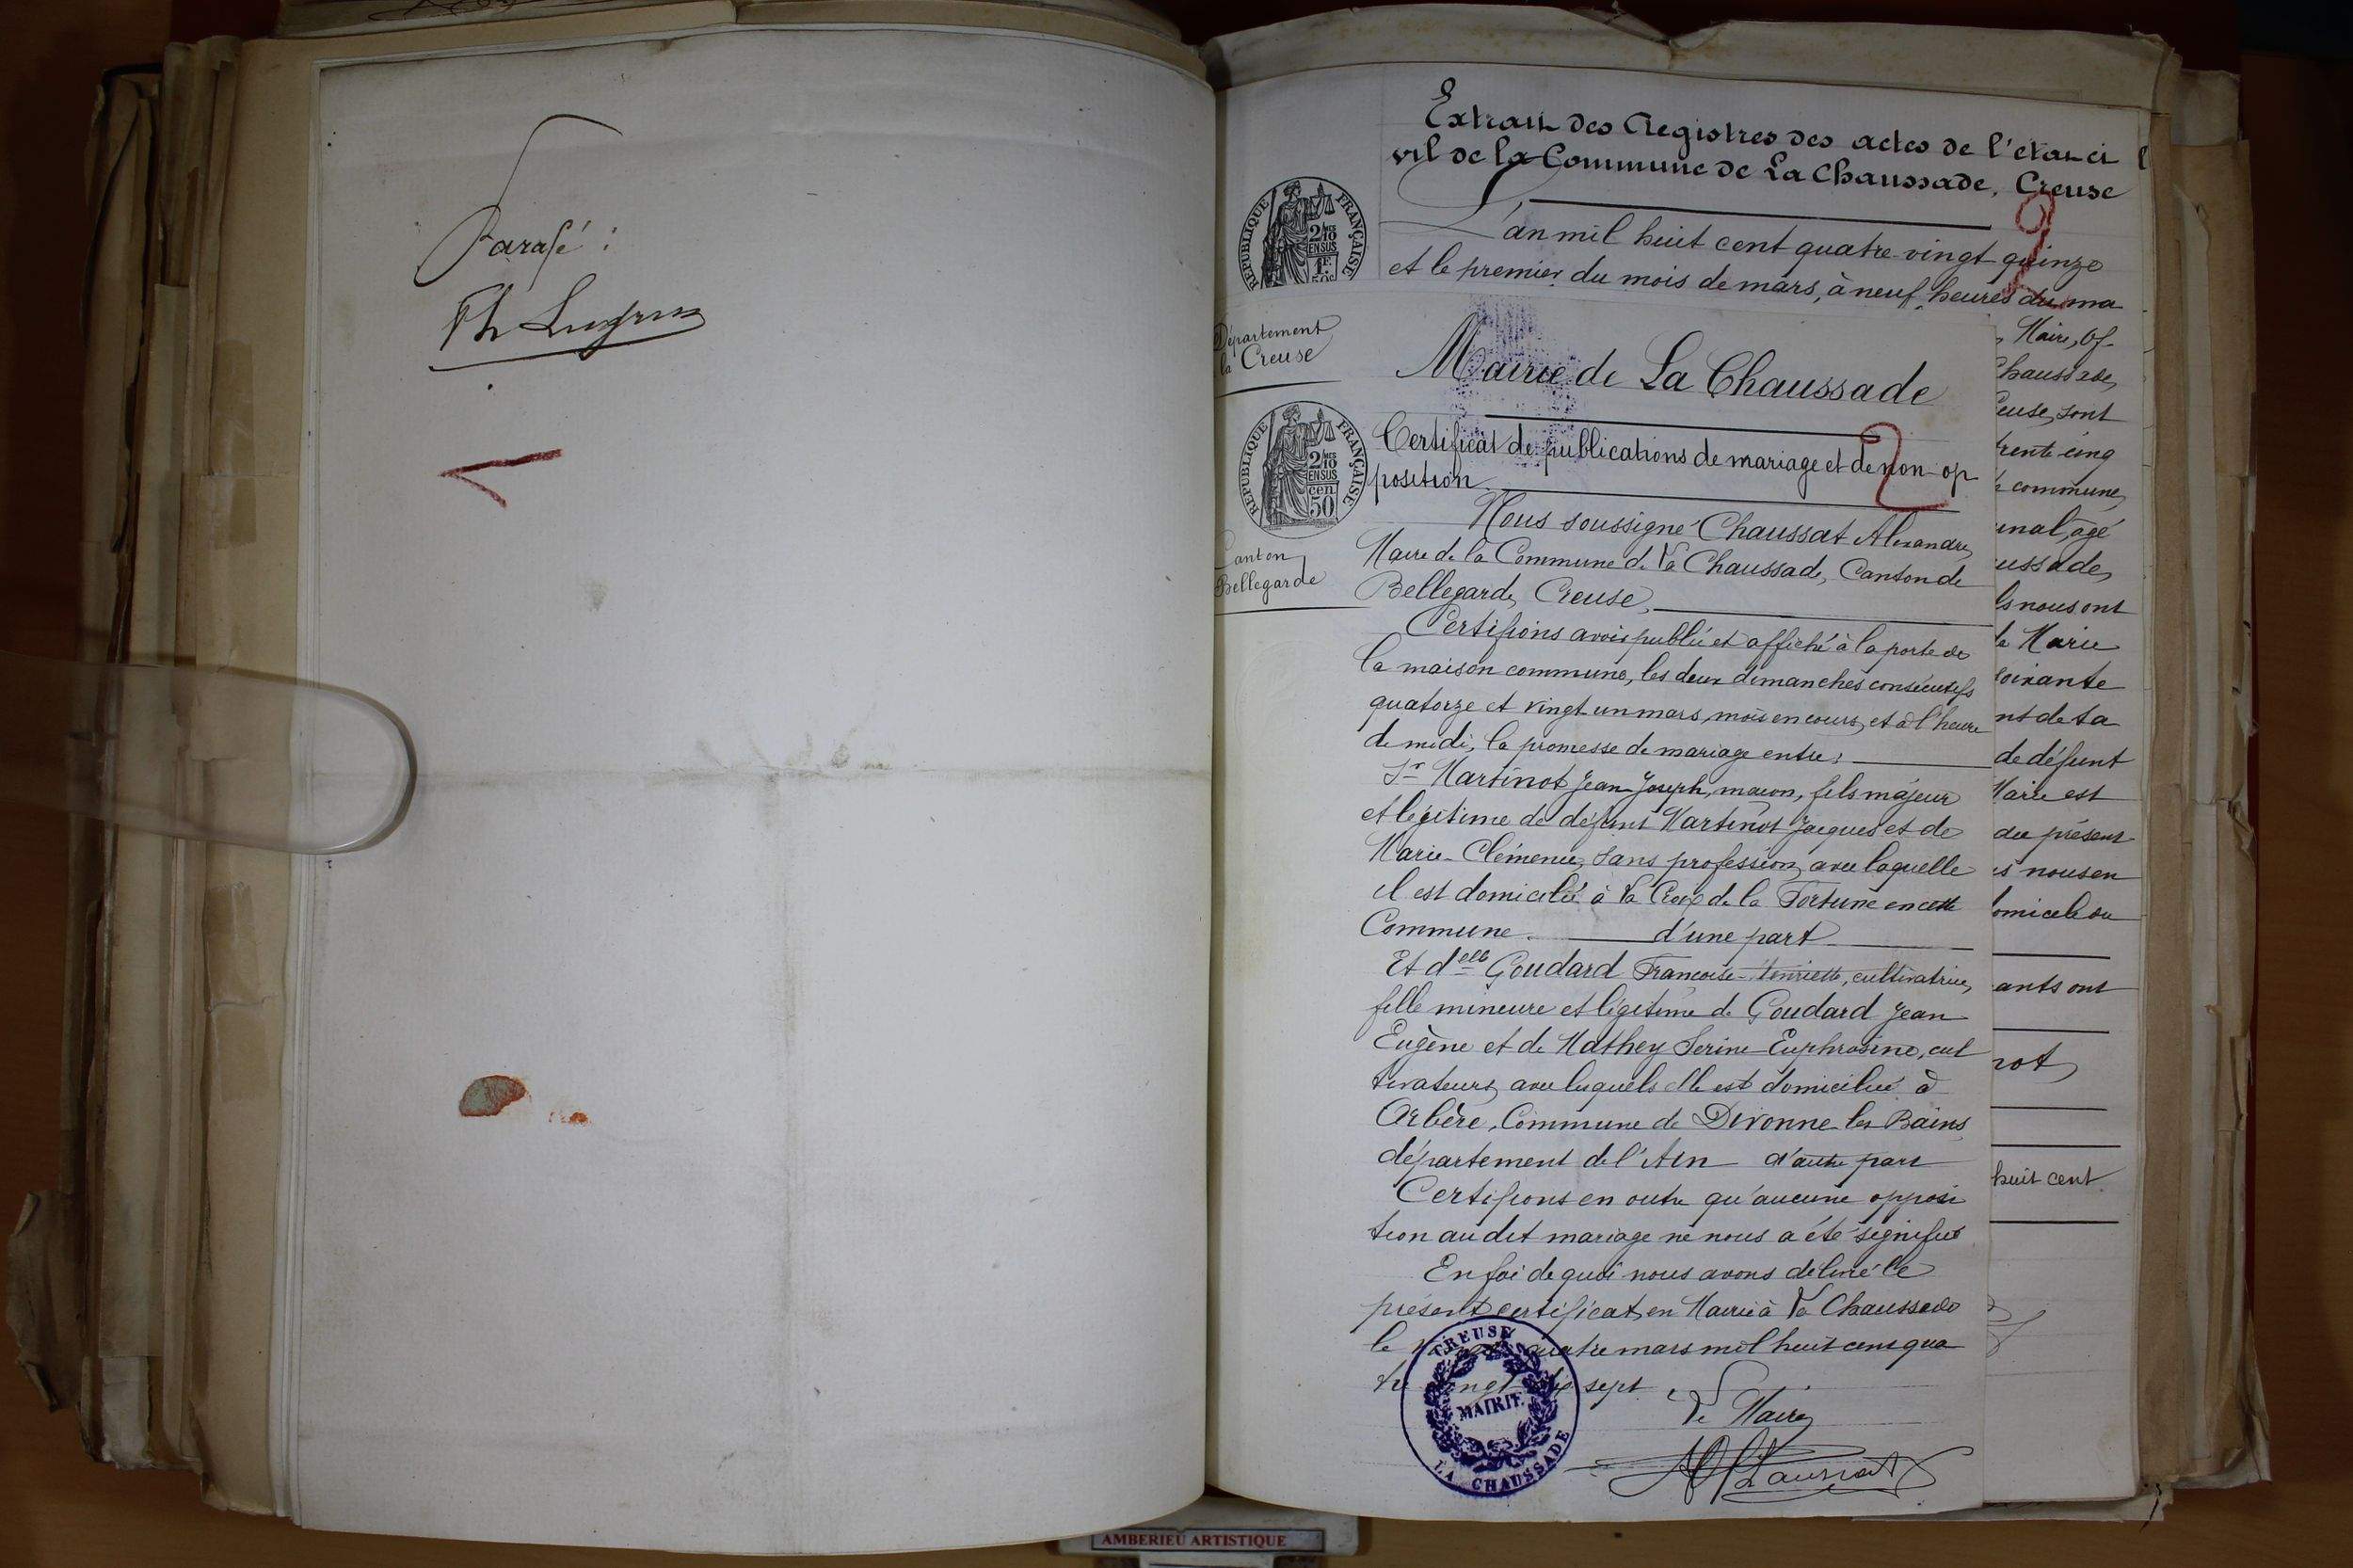 Parafé :
1
Extrait des Registres des actes de l'état ci
vil de la Commune de La Chaussade, Creuse
L'an mil huit cent quatre-vingt quinze
et le premier du mois de mars, à neuf heures du ma
REPUBLIQUE FRANÇAISE
2/10 EN SUS
1F.
50c
Département
la Creuse
Mairie de La Chaussade
REPUBLIQUE FRANÇAISE
2/10 EN SUS
cen.
50
Canton
Bellegarde
2
Certificat de publications de mariage et de non-op
position
Nous soussigné Chaussat Alexandre,
Maire de la Commune de La Chaussade, Canton de
Bellegarde, Creuse,
Certifions avoir publié et affiché à la porte de
la maison commune, les deux dimanches consécutifs
quatorze et vingt un mars, mois en cours, et à l'heure
de midi, la promesse de mariage entre :
Sr Martinot Jean-Joseph, maçon, fils majeur
et légitime de défunt Martinot Jacques et de
Marie Clémence, sans profession, avec laquelle
il est domicilié à la Croix de la Fortune en cette
Commune. d'une part
Et delle Goudard Françoise-Henriette, cultivatrice,
fille mineure et légitime de Goudard Jean
Eugène et de Mathey Serine Euphrosine, cul
tivateurs, avec lesquels elle est domiciliée à
Arbère, Commune de Divonne-les-Bains
département de l'Ain d'autre part
Certifions en outre qu'aucune opposi
tion au dit mariage ne nous a été signifiée
En foi de quoi nous avons délivré le
présent certificat, en Mairie à La Chaussade
le quatre mars mil huit cent qua
tre sept.
Le Maire,
AChaussat
CREUSE
MAIRIE
LA CHAUSSADE
Maire, Of-
Chaussade,
euse, sont
trente cinq
commune,
unal, âgé
ussade,
ls nous ont
Marie
soixante
nt de sa
de défunt
Marie est
du présent
s nous en
omicile du
ants ont
not
huit cent
AMBERIEU ARTISTIQUE